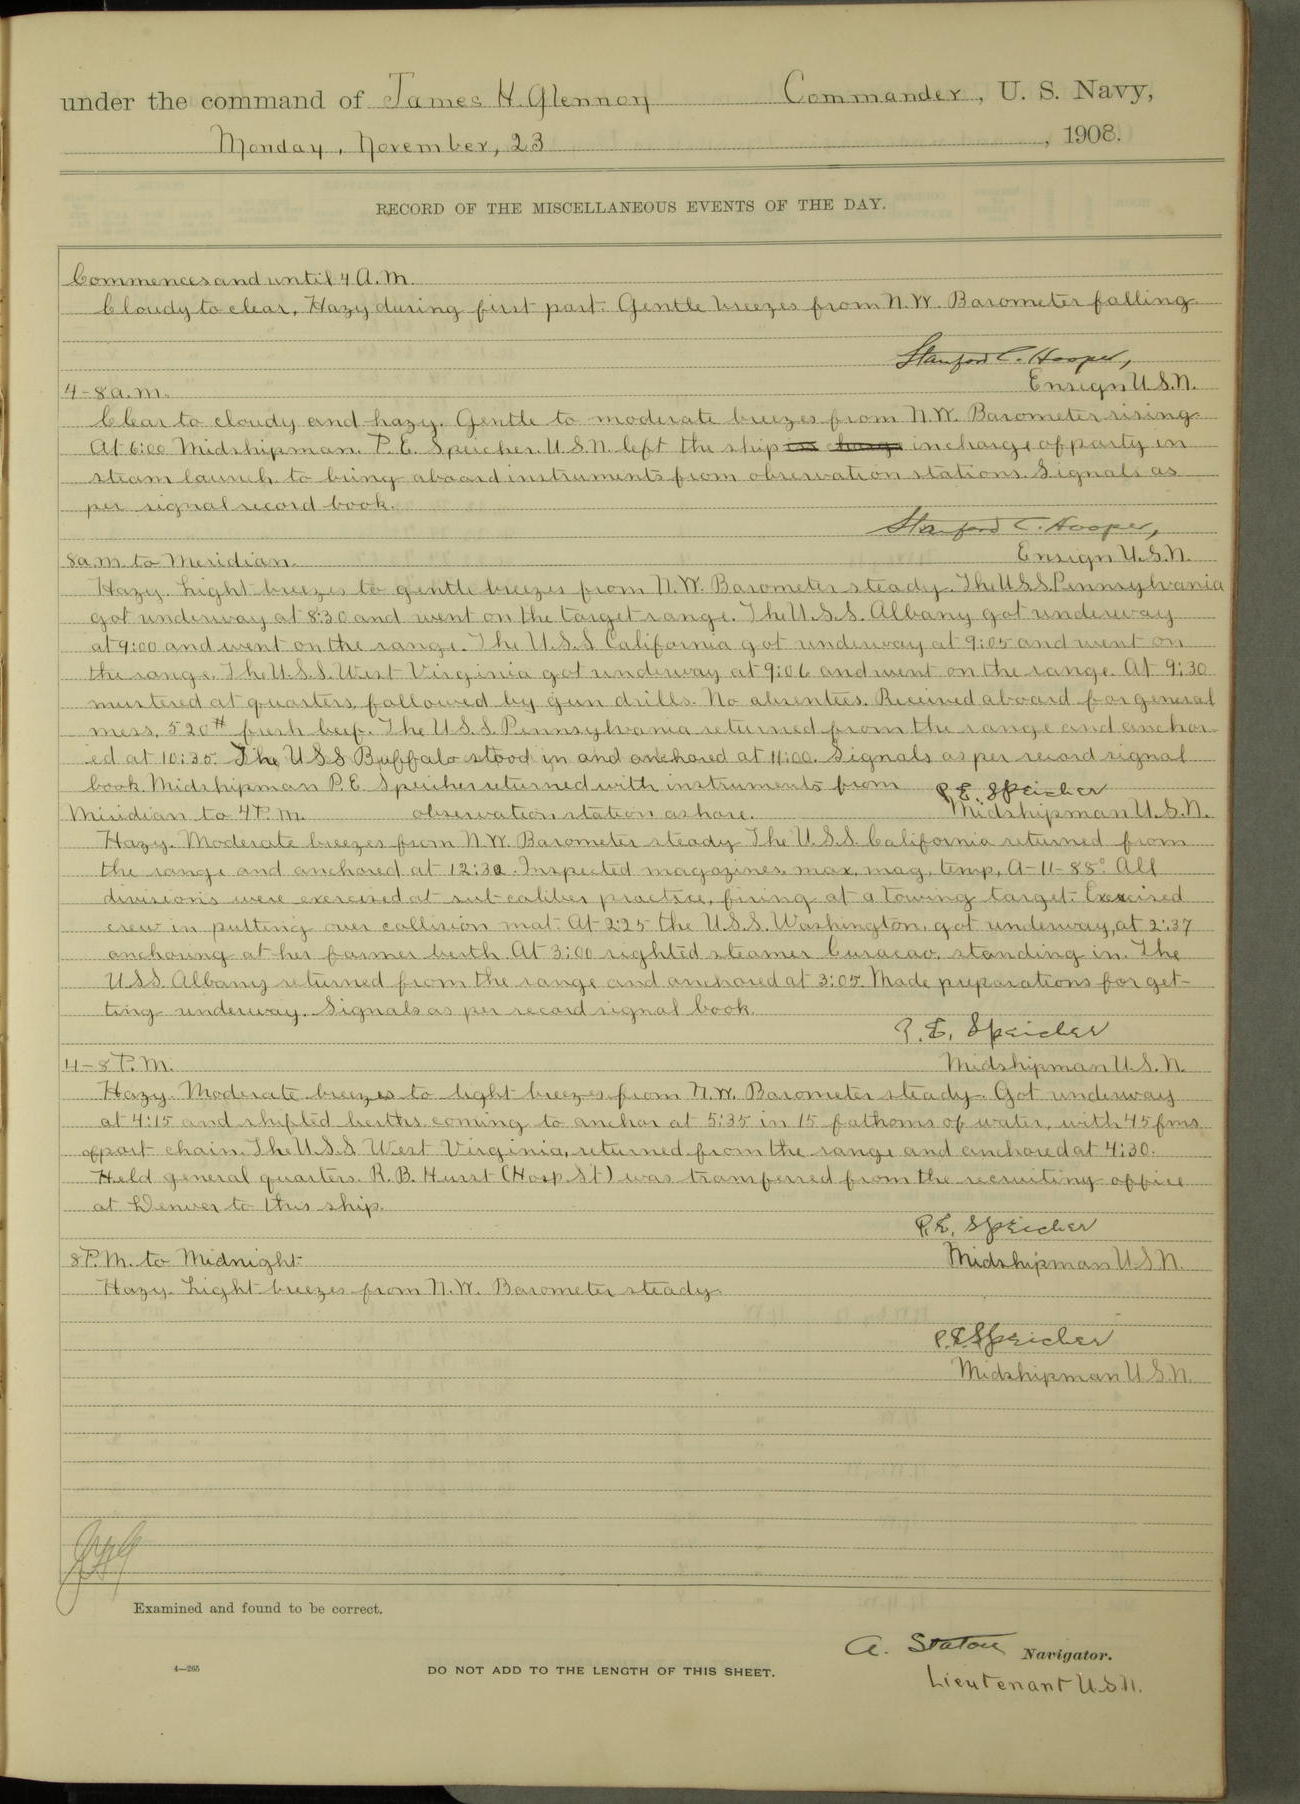 under the command of James H. Glennon Commander, U. S. Navy,
Monday, November, 23, 1908.
RECORD OF THE MISCELLANEOUS EVENTS OF THE DAY.
Commences and until 4 A.M.
Cloudy to clear, Hazy during first part. Gentle breezes from N.W. Barometer falling
Stanford C. Hooper,
Ensign U.S.N.
4-8 a.m.
Clear to cloudy and hazy. Gentle to moderate breezes from N.W. Barometer rising.
At 6:00 Midshipman. P. E. Speicher. U.S.N. left the ship in charge in charge of party in
steam launch to bring aboard instruments from observation stations. Signals as
per signal record book.
Stanford C. Hooper,
Ensign U.S.N.
8 a.m. to Meridian.
Hazy. Light breezes to gentle breezes from N.W. Barometer steady. The U.S.S. Pennsylvania
got underway at 8:30 and went on the target range. The U.S.S. Albany got underway
at 9:00 and went on the range. The U.S.S. California got underway at 9:05 and went on
the range. The U.S.S. West Virginia got underway at 9:06 and went on the range. At 9:30
mustered at quarters, followed by gun drills. No absentees. Received aboard for general
mess, 520# fresh beef. The U.S.S. Pennsylvania returned from the range and anchor-
ed at 10:35. The U.S.S. Buffalo stood in and anchored at 11:00. Signals as per record signal
book. Midshipman P.E. Speicher returned with instruments from
observation station ashore.
P. E. Speicher
Midshipman U.S.N.
Miridian to 4 P.M.
Hazy. Moderate breezes from N.W. Barometer steady The U.S.S. California returned from
the range and anchored at 12:30. Inspected magazines, max. mag. temp, A-11-88° All
divisions were exercised at sub-caliber practice, firing at a towing target. Exercised
crew in putting over collision mat. At 2:25 the U.S.S. Washington, got underway, at 2:37
anchoring at her former berth. At 3:00 sighted steamer Curacao, standing in. The
U.S.S. Albany returned from the range and anchored at 3:05. Made preparations for get-
ting underway. Signals as per record signal book.
P. E. Speicher
Midshipman U.S.N.
4-8 P.M.
Hazy. Moderate breezes to light breezes from N.W. Barometer steady. Got underway
at 4:15 and shifted berths, coming to anchor at 5:35 in 15 fathoms of water, with 45 fms
of port chain. The U.S.S. West Virginia, returned from the range and anchored at 4:30.
Held general quarters. R. B. Hurst (Hosp. St) was transferred from the recruiting office
at Denver to this ship.
P. E. Speicher
Midshipman U.S.N.
8 P.M. to Midnight
Hazy. Light breezes from N.W. Barometer steady.
P. E. Speicher
Midshipman U.S.N.
Examined and found to be correct.
A. Staton Navigator.
Lieutenant U.S.N.
4—265
DO NOT ADD TO THE LENGTH OF THIS SHEET.